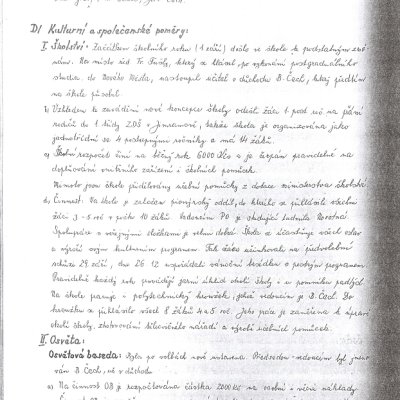 D/ Kulturní a společenské poměry:
I. Školství: Začátkem školního roku (1. září) došlo ve škole k podstatným změ-
nám. Na místo řed. Fr. , který se hlásil, po vykonání postgraduálního
studia do Nového Města, nastoupil učitel v důchodu B. Čech, který předtím
na škole působil.
b) Vzhledem k zavádění nové koncepce školy odešli žáci 4. post. roč. na přání
rodičů do 1. třídy ZDŠ v Jimramově, takže škola je organizována jako
jednotřídní se 4 postupnými ročníky a má 14 žáků.
c) Školní rozpočet činí na běžný rok 6000 Kčs a je čerpán pravidelně na
doplňování vnitřního zařízení a školních pomůcek.
Mimoto jsou škole přidělovány učební pomůcky z dotace ministerstva školství.
d) Činnost: Na škole je založen pionýrský oddíl, do kterého se přihlásili všichni
žáci 3.-5. roč. v počtu 10 žáků. Vedoucím PO je soudružka Ludmila Novotná.
Spolupráce s veřejnými složkami je velmi dobrá. Škola se zúčastňuje všech oslav
a výročí svým kulturním programem. Tak žáci účinkovali na jednotné
schůzi 29. září, dne 26. 12. uspořádali vánoční besídku s pestrým programem.
Pravidelně každý rok provádějí jarní úklid okolí školy a u pomníku padlých.
Na škole pracuje polytechnický kroužek, jehož vedoucím je B. Čech. Do
kroužku se přihlásilo všech 8 žáků 4. a 5. roč. Jeho práce je zaměřena k úpravě
okolí školy, zhotovování tělocvičného nářadí a výrobě učebních pomůcek.
II. Osvěta:
Osvětová beseda: Byla po volbách nově ustavena. Předsedou-vedoucím byl jmeno-
ván B. Čech, uč. v důchodu.
a) Na činnost OB je rozpočtována částka 200 Kčs na osobní a věcné náklady.